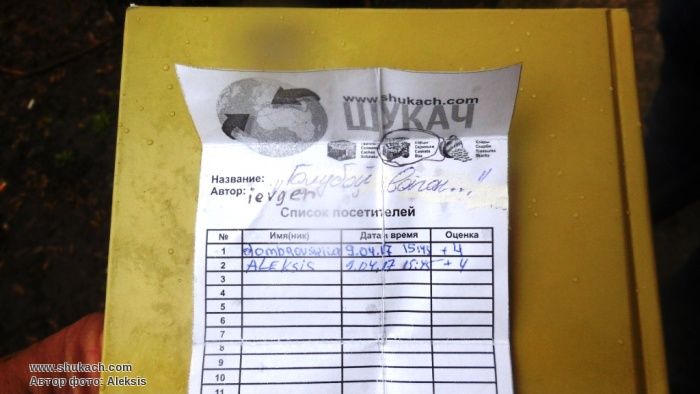 www.shukach.com
ШУКАЧ
Название: "Голубой вагон..."
Автор: ievgen
Список посетителей
№ Имя(ник) Дата и время Оценка
1 9.04.17 15:45 +4
2 ALEKSIS 9.04.17 15:45 +4
3
4
5
6
7
8
9
10
11
www.shukach.com
Автор фото: Aleksis